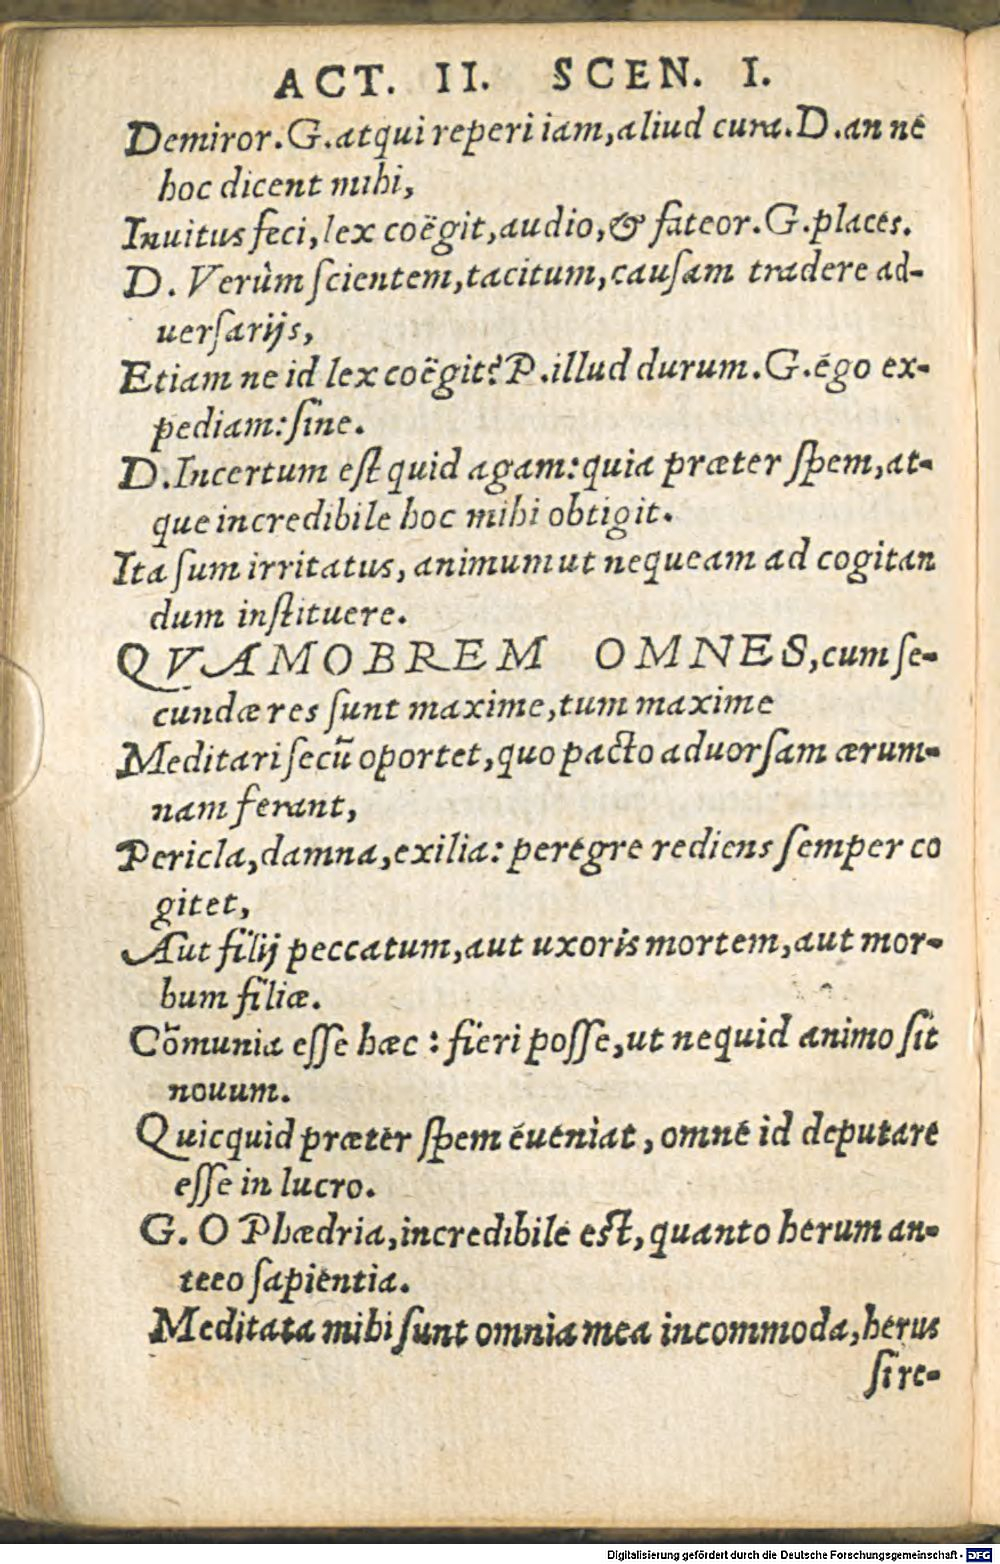 ACT. II. SCEN. I.
Demiror. G. atqui reperi iam, aliud cura. D. an ne
hoc dicent mihi,
Inuitus feci, lex coëgit, audio, & fateor. G. places.
D. Verùm ſcientem, tacitum, cauſam tradere ad-
uerſarijs,
Etiam ne id lex coëgit? P. illud durum. G. égo ex-
pediam: ſine.
D. Incertum eſt quid agam: quia præter ſpem, at-
que incredibile hoc mihi obtigit.
Ita ſum irritatus, animum ut nequeam ad cogitan
dum inſtituere.
QVAMOBREM OMNES, cum ſe-
cundæ res ſunt maxime, tum maxime
Meditari ſecũ oportet, quo pacto aduorſam ærum-
nam ferant,
Pericla, damna, exilia: peregre rediens ſemper co
gitet,
Aut filij peccatum, aut uxoris mortem, aut mor-
bum filiæ.
Cõmunia eſſe hæc: fieri poſſe, ut nequid animo ſit
nouum.
Quicquid præter ſpem éueniat, omne id deputare
eſſe in lucro.
G. O Phædria, incredibile eſt, quanto herum an-
teeo ſapientia.
Meditata mihi ſunt omnia mea incommoda, herus
ſi re-
Digitalisierung gefördert durch die Deutsche Forschungsgemeinschaft - DFG